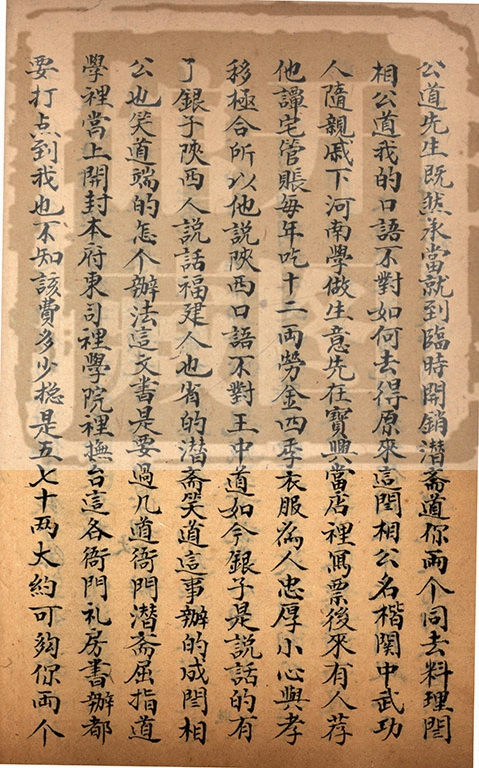 公道先生既然承當就到臨時開銷潜斎道你両个同去料理閆
相公道我的口語不對如何去得原來這閆相公名楷関中武功
人隨親戚下河南學做生意先在寶興當店裡寫票後來有人荐
他譚宅管賬每年吃十二両勞金四季衣服為人忠厚小心與孝
移極合所以他說陝西口語不對王中道如今銀子是說話的有
了銀子陝西人説話福建人也省的潜斎笑道這事辦的成閆相
公也笑道端的怎个辦法這文書是要過几道衙門潜斎屈指道
學裡當上開封本府東司裡學院裡撫台這各衙門礼房書辦都
要打点到我也不知該費多少捴是五七十両大約可夠你両个